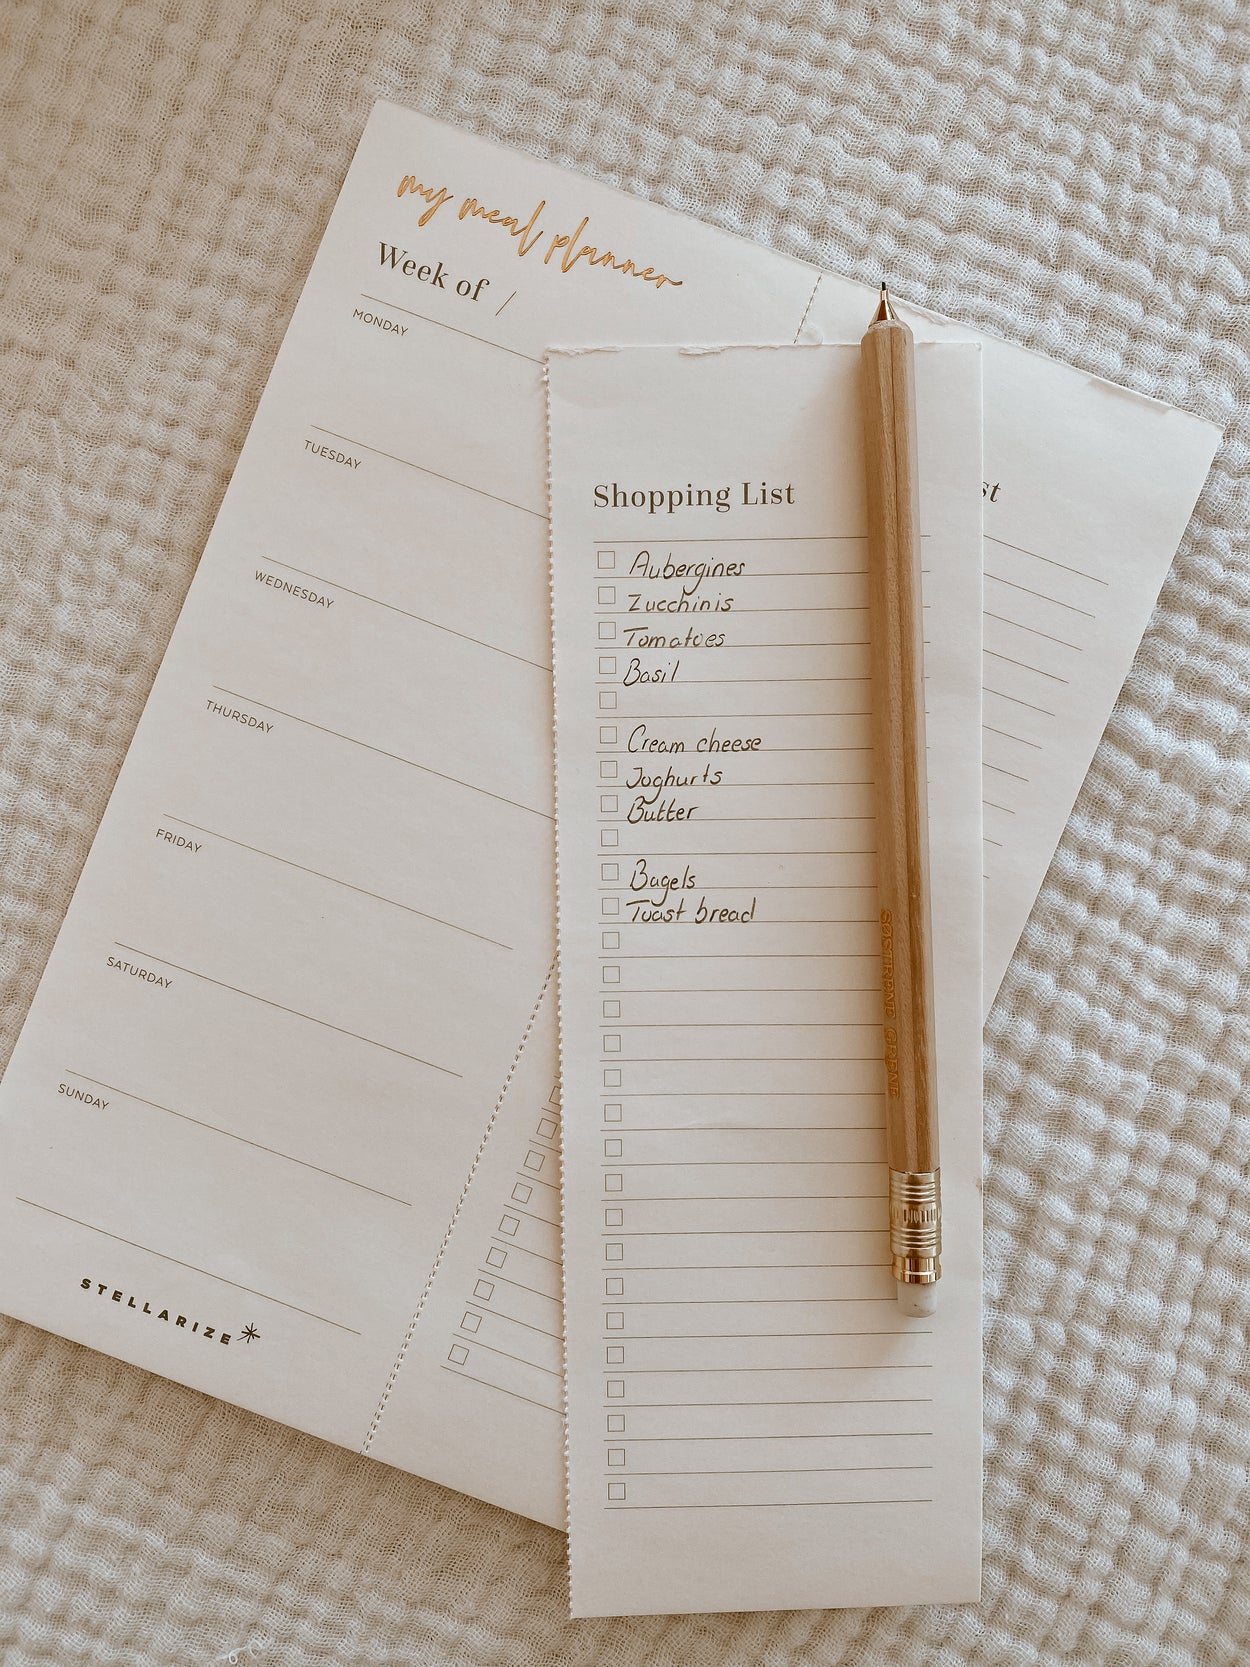 my meal planner
Week of /
MONDAY
TUESDAY
WEDNESDAY
THURSDAY
FRIDAY
SATURDAY
SUNDAY
STELLARIZE
Shopping List
Aubergines
Zucchinis
Tomatoes
Basil
Cream cheese
Joghurts
Butter
Bagels
Toast bread
st
SØSTRENE GRENE